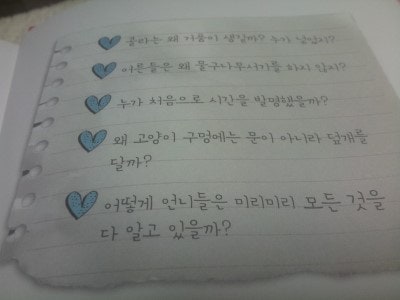 콜라는 왜 거품이 생길까? 누가 넣었지?
어른들은 왜 물구나무서기를 하지 않지?
누가 처음으로 시간을 발명했을까?
왜 고양이 구멍에는 문이 아니라 덮개를
달까?
어떻게 언니들은 미리미리 모든 것을
다 알고 있을까?